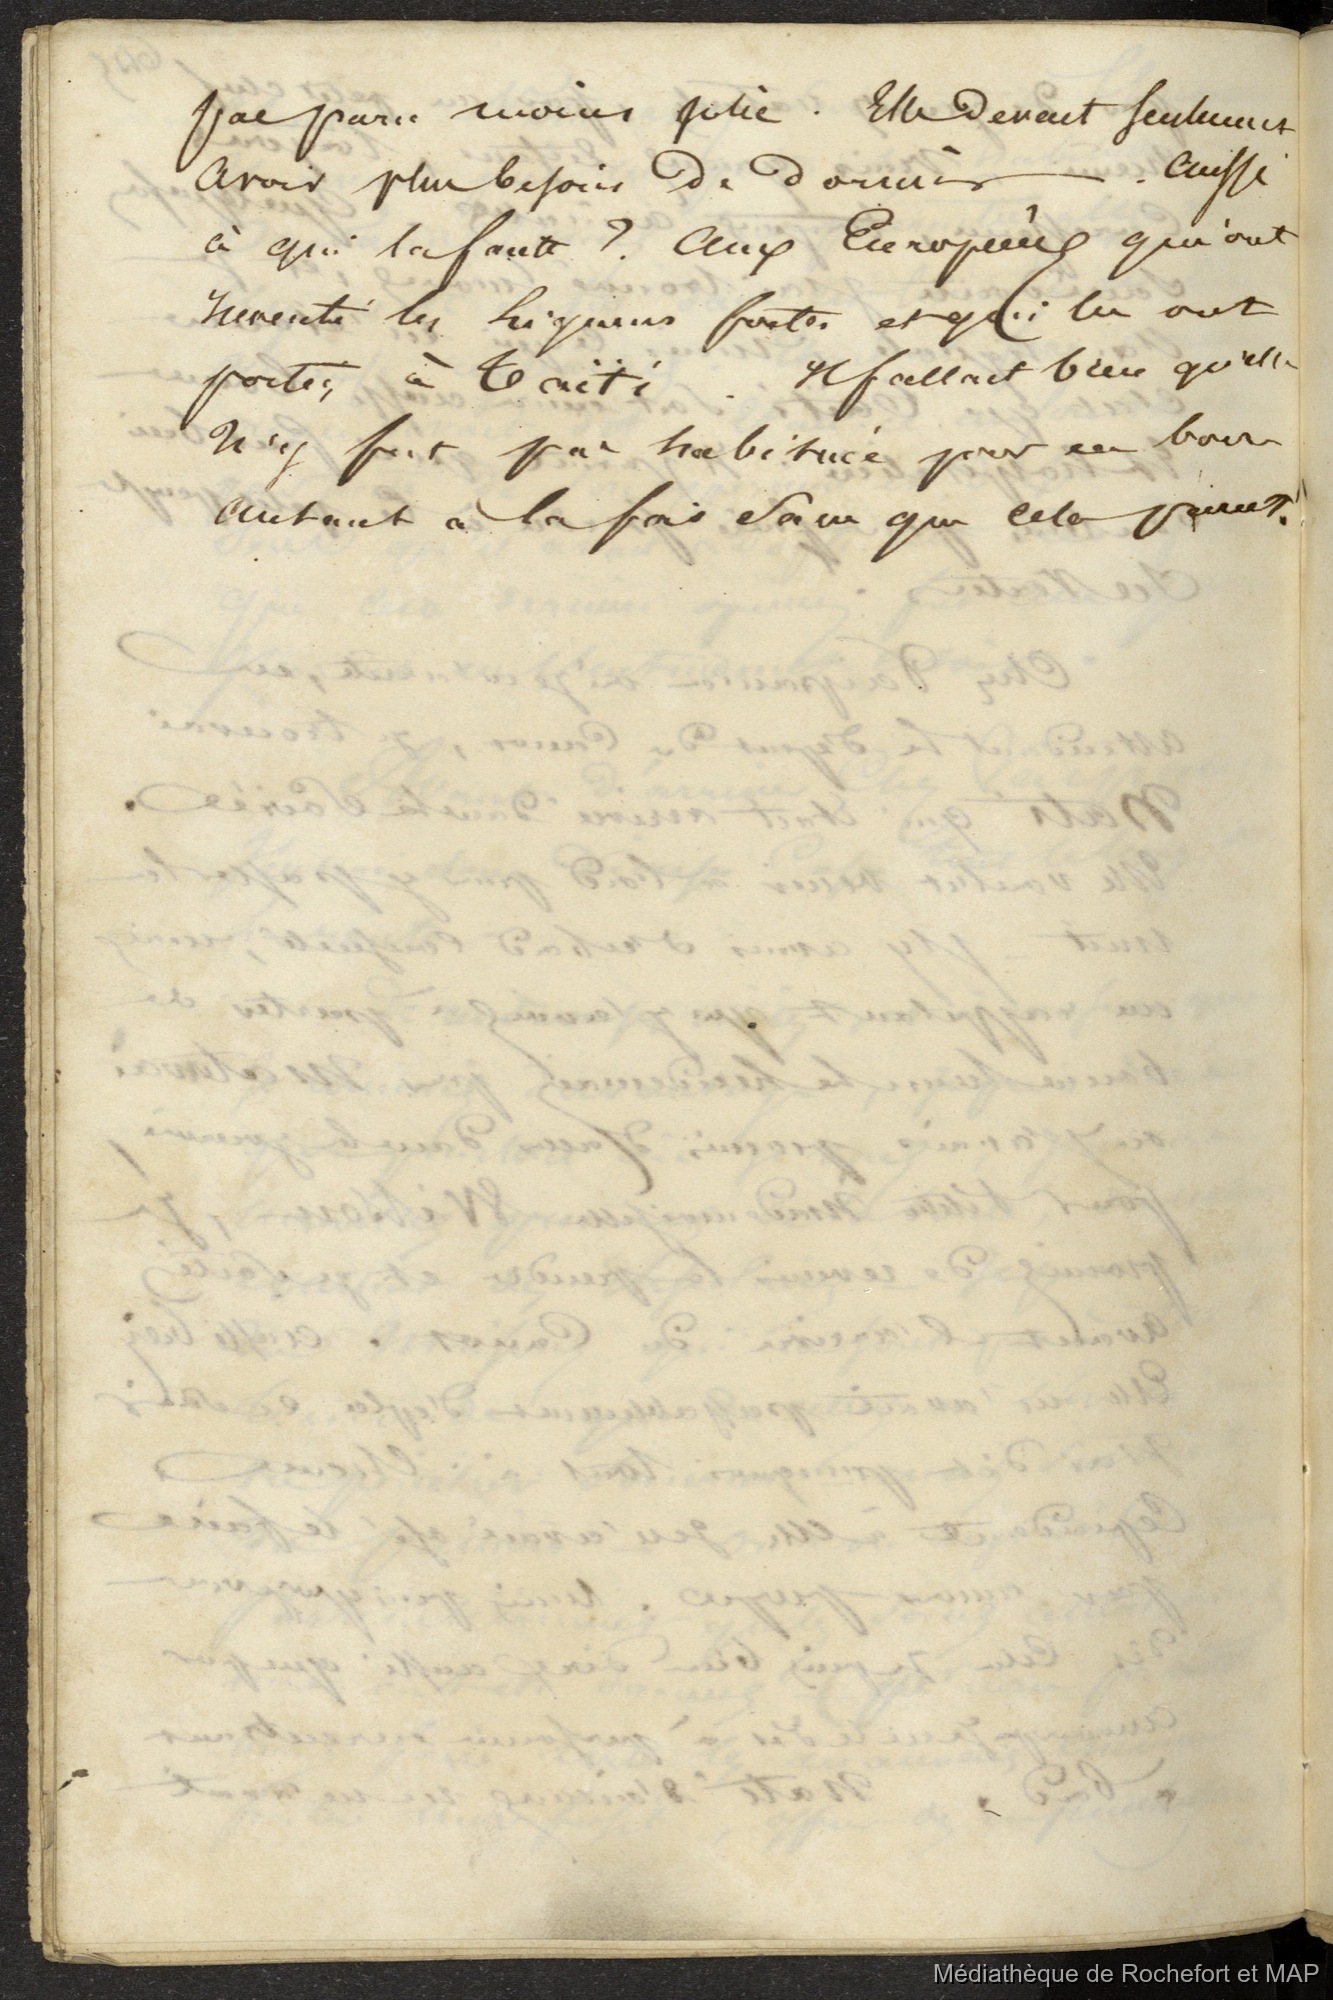 pas paru moins jolie. Elle devait seulement
avoir plus besoin de dormir. Aussi
à qui la faute ? Aux Européens qui ont
inventé les liqueurs fortes et qui les ont
portés à Taïti. Il fallait bien qu'elle
n'y fut pas habituée pour en boire
autant à la fois sans que cela parut.
Médiathèque de Rochefort et MAP